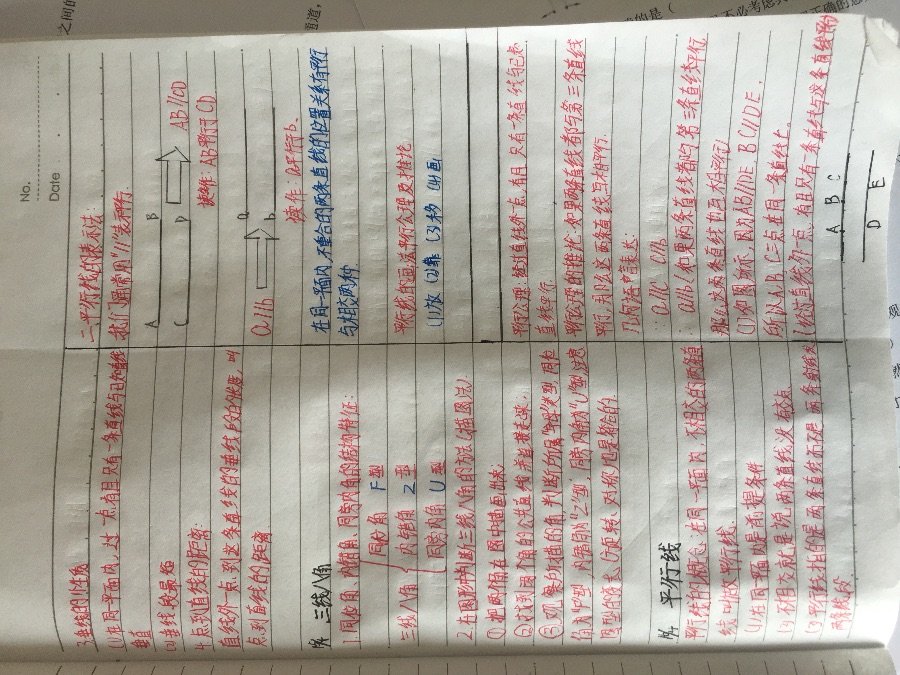 No.
Date
3.垂线的性质
(1)在同一平面内,过一点有且只有一条直线与已知直线
垂直
(2)垂线段最短
4.点到直线的距离:
直线外一点到这条直线的垂线段的长度,叫
点到直线的距离
三线八角
1.同位角、内错角、同旁内角的结构特征:
同位角 F型
三线八角 内错角 Z型
同旁内角 U型
2.在图形中判断三线八角的方法(描图法)
①把两个角在图中描画出来
②找到两个角的公共直线
③观察所描的角,判断所属"字母"类型,同位
角为"F"型,内错角为"Z"型,同旁内角"U"型,注意
图型的放大、分旋转、对称也是相信的.
平行线
平行线的概念:在同一平面内,不相交的两条直
线叫做平行线.
(1)在同一平面内是前提条件
不相交就是说两条直线没有交点.
(3)平行线指的是两条直线而不是两条射线或
两条线段
二平行线的表示法:
我们通常用"//"表示平行.
A B
C D AB//CD
读作:AB平行于CD
a//b a
b
读作:a平行于b.
在同一平面内,不重合的两条直线的位置关系有平行
与相交两种
平行线的画法平行公理及推论
(1)放 (2)靠 (3)移 (4)画
平行公理:经过直线外一点,有且只有一条直线与已知
直线平行.
平行公理的推论:如果两条直线都与第三条直线
平行,那么这两条直线互相平行.
几何语言表达:
∵a//c c//b
∴a//b(如果两条直线都与第三条直线平行
那么这两条直线也互相平行)
(1)如图所示,因为AB//DE,BC//DE,
所以A、B、C三点在同一条直线上.
(经过直线外一点,有且只有一条直线与这条直线平
A B C
D E